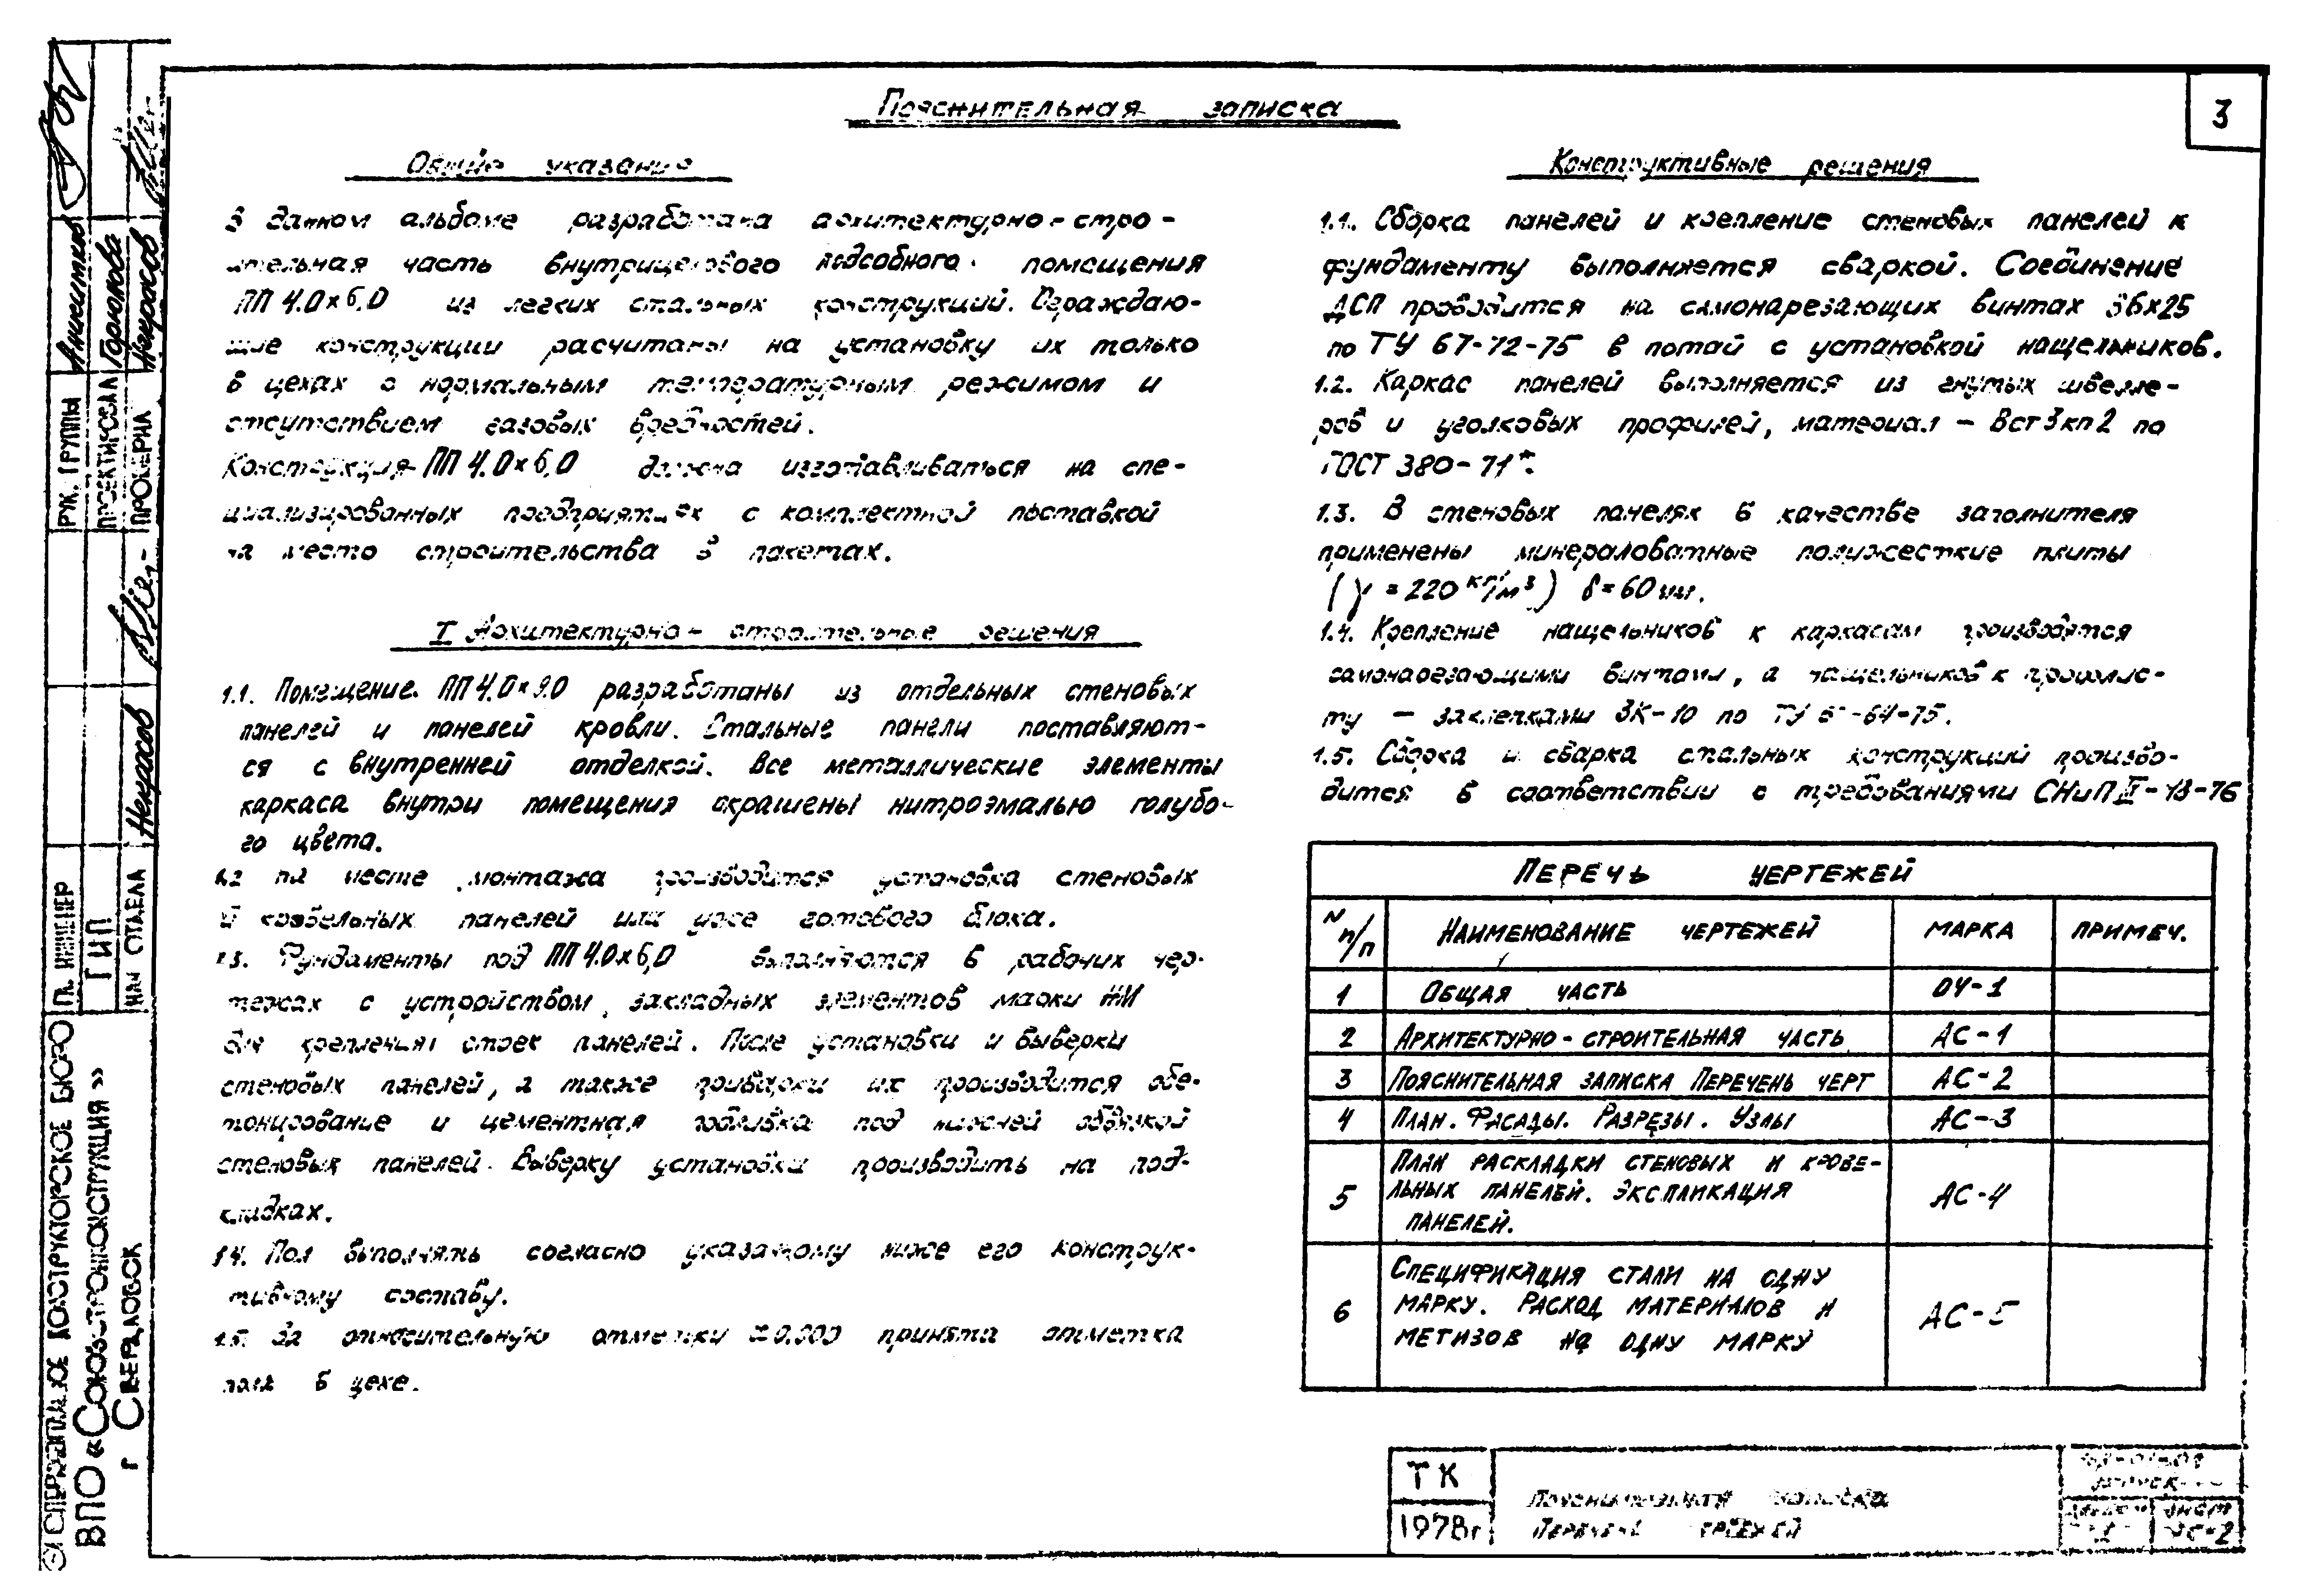 Пояснительная записка
3
Общие указания
В данном альбоме разработана архитектурно-стро-
ительная часть внутрицехового подсобного помещения
ПП 4.0×6,0 из легких стальных конструкций. Ограждаю-
щие конструкции расчитаны на установку их только
в цехах с нормальным температурным режимом и
отсутствием газовых вредностей.
Конструкция ПП 4.0×6,0 должна изготавливаться на спе-
циализированных предприятиях с комплектной поставкой
на место строительства в пакетах.
I Архитектурно-строительные решения
1.1. Помещение ПП 4.0×9.0 разработаны из отдельных стеновых
панелей и панелей кровли. Стальные панели поставляют-
ся с внутренней отделкой. Все металлические элементы
каркаса внутри помещения окрашены нитроэмалью голубо-
го цвета.
1.2 На месте монтажа производится установка стеновых
и кровельных панелей или уже готового блока.
1.3. Фундаменты под ПП 4.0×6,0 выполняются в рабочих чер-
тежах с устройством закладных элементов марки МИ
для крепления стоек панелей. После установки и выверки
стеновых панелей, а также приварки их производится обе-
тонирование и цементная подливка под нижней обвязкой
стеновых панелей. Выверку установки производить на под-
кладках.
1.4. Пол выполнять согласно указанному ниже его конструк-
тивному составу.
1.5. За относительную отметку ±0.000 принята отметка
пола в цехе.
Конструктивные решения
1.1. Сборка панелей и крепление стеновых панелей к
фундаменту выполняется сваркой. Соединение
ДСП проводится на самонарезающих винтах В6×25
по ТУ 67-72-75 в потай с установкой нащельников.
1.2. Каркас панелей выполняется из гнутых швелле-
ров и уголковых профилей, материал - Вст3кп2 по
ГОСТ 380-71*.
1.3. В стеновых панелях в качестве заполнителя
применены минераловатные полужесткие плиты
(γ = 220 кг/м³) δ = 60 мм.
1.4. Крепление нащельников к каркасам производятся
самонарезающими винтами, а нащельников к профлис-
ту - заклепками ЗК-10 по ТУ
1.5. Сборка и сварка стальных конструкций произво-
дится в соответствии с требованиями СНиП III-18-76
Перечь чертежей
N п/п Наименование чертежей Марка Примеч.
1 Общая часть ОУ-1
2 Архитектурно-строительная часть АС-1
3 Пояснительная записка Перечень черт АС-2
4 План. Фасады. Разрезы. Узлы АС-3
5 План раскладки стеновых и крове-
льных панелей. Экспликация
панелей. АС-4
6 Спецификация стали на одну
марку. Расход материалов и
метизов на одну марку АС-5
ТК
1978г
Пояснительная записка
Перечень чертежей
лист
АС-2
Рук. группы Аникитин
Проектировал Горюнова
Проверил Некрасов
Гл. инженер
ГИП
Нач отдела Некрасов
конструкторское бюро
ВПО «Союзстройконструкция»
г Свердловск